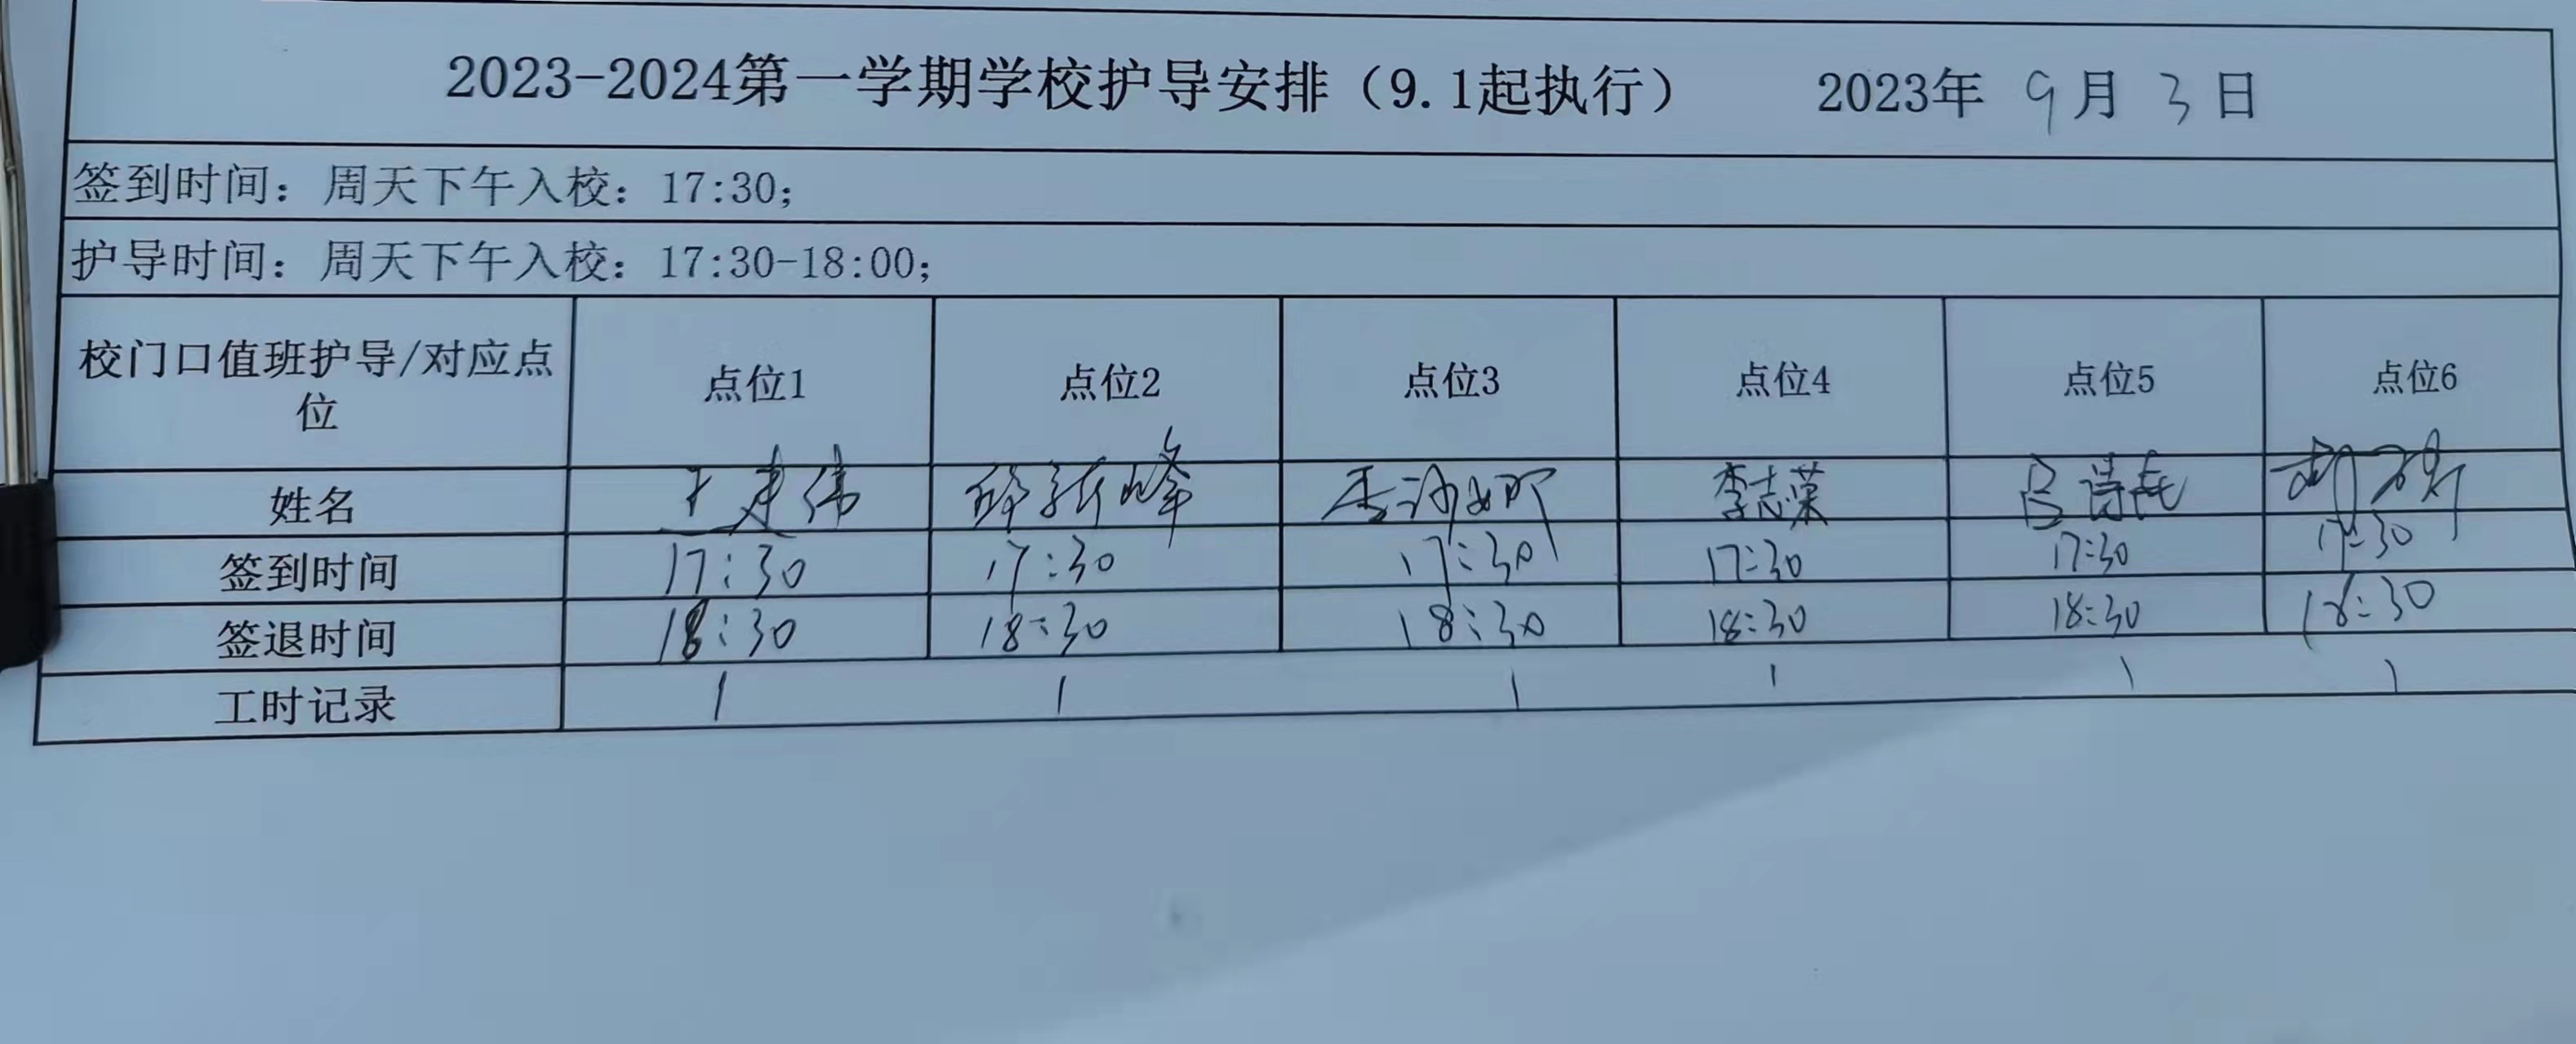 2023-2024第一学期学校护导安排（9.1起执行） 2023年 9月 3日
签到时间：周天下午入校：17:30；
护导时间：周天下午入校：17:30-18:00；
校门口值班护导/对应点位 点位1 点位2 点位3 点位4 点位5 点位6
姓名 王建伟 李志荣
签到时间 17:30 17:30 17:30 17:30 17:30 17:30
签退时间 18:30 18:30 18:30 18:30 18:30 18:30
工时记录 1 1 1 1 1 1